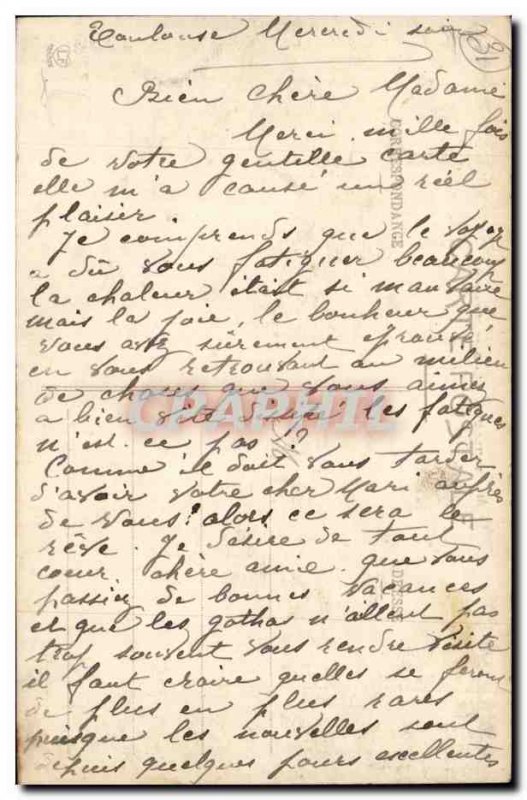 Toulouse Mercredi soir
Bien chère Madame
Merci mille fois
de votre gentille carte
elle m'a causé un réel
plaisir.
Je comprends que le voyage
a dû vous fatiguer beaucoup
la chaleur était si mauvaise
mais la joie, le bonheur que
vous avez sûrement éprouvé
en vous retrouvant au milieu
de choses que vous aimes
a bien vite dissipé les fatigues
n'est ce pas !?
Comme il doit vous tarder
d'avoir votre cher Mari auprès
de vous! alors ce sera le
rêve. Je désire de tout
coeur chère amie que vous
passiez de bonnes vacances
et que les gothas n'aillent pas
trop souvent vous rendre visite
il faut croire qu'elles se feront
de plus en plus rares
puisque les nouvelles sont
depuis quelques jours excellentes
CORRESPONDANCE
CARTE POSTALE
CPAPHIL